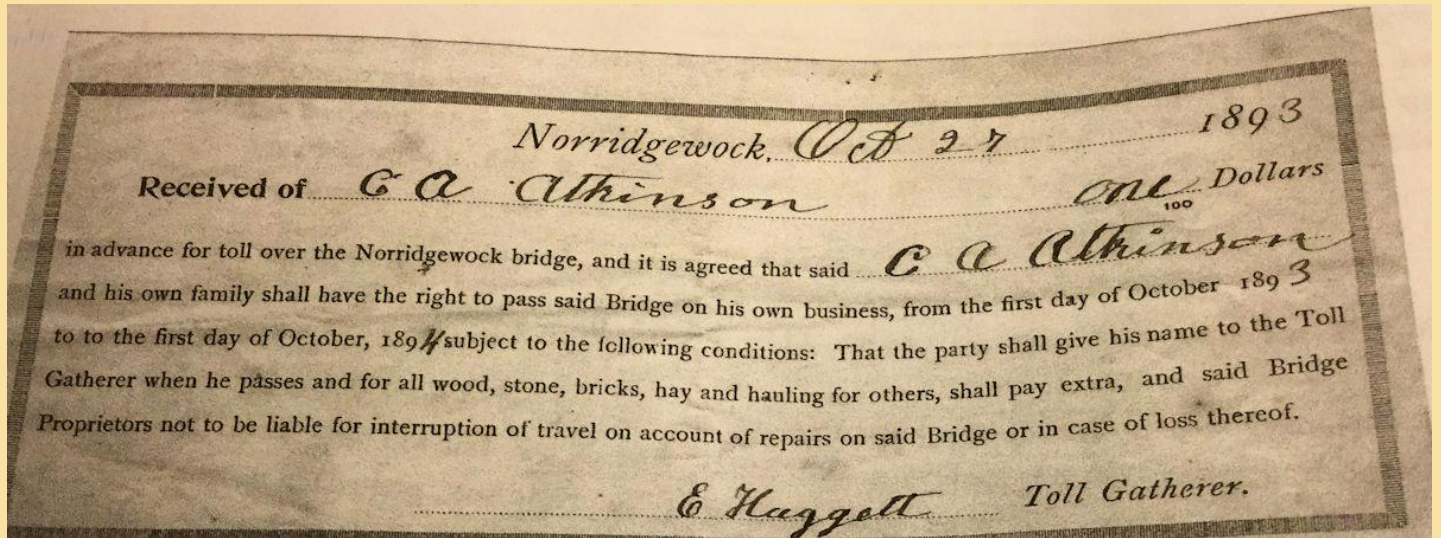 Norridgewock, Oct 27 1893
Received of C A Atkinson one Dollars
100
in advance for toll over the Norridgewock bridge, and it is agreed that said C A Atkinson
and his own family shall have the right to pass said Bridge on his own business, from the first day of October 1893
to to the first day of October, 1894 subject to the following conditions: That the party shall give his name to the Toll
Gatherer when he passes and for all wood, stone, bricks, hay and hauling for others, shall pay extra, and said Bridge
Proprietors not to be liable for interruption of travel on account of repairs on said Bridge or in case of loss thereof.
E Haggett Toll Gatherer.